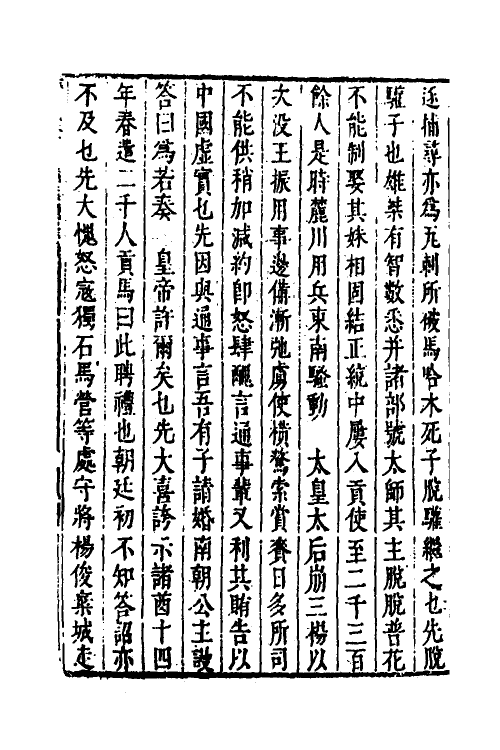 逐捕尋亦為瓦剌所破馬哈木死子脫驩繼之也先脫
驩子也雄桀有智數悉并諸部號太師其主脫脫普花
不能制娶其妹相固結正統中屢入貢使至二千三百
餘人是時麓川用兵東南騷動　太皇太后崩三楊以
次没王振用事邊備漸弛虜使橫驁索賞賚日多所司
不能供稍加減約即怒肆醜言通事輩又利其賄告以
中國虛實也先因與通事言吾有子請婚南朝公主詖
答曰為若奏　皇帝許爾矣也先大喜誇示諸酋十四
年春遣二千人貢馬曰此聘禮也朝廷初不知答詔亦
不及也先大愧怒寇獨石馬營等處守將楊俊棄城走